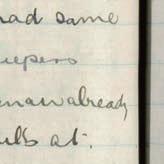 had same
eepers
man already
ults at.